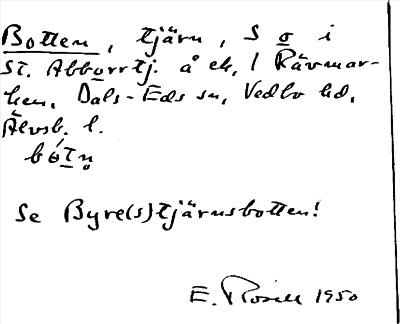 Botten, tjärn, S o i
St. Abborrtj. å ek, / Rävmar-
ken, Dals-Eds sn, Vedbo hd,
Älvsb. l.
bótn̥
Se Byre(s)tjärnsbotten!
E. 1950